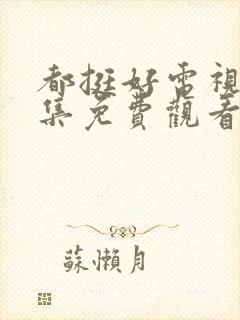 都挺好電視
集免費觀看
蘇懶月